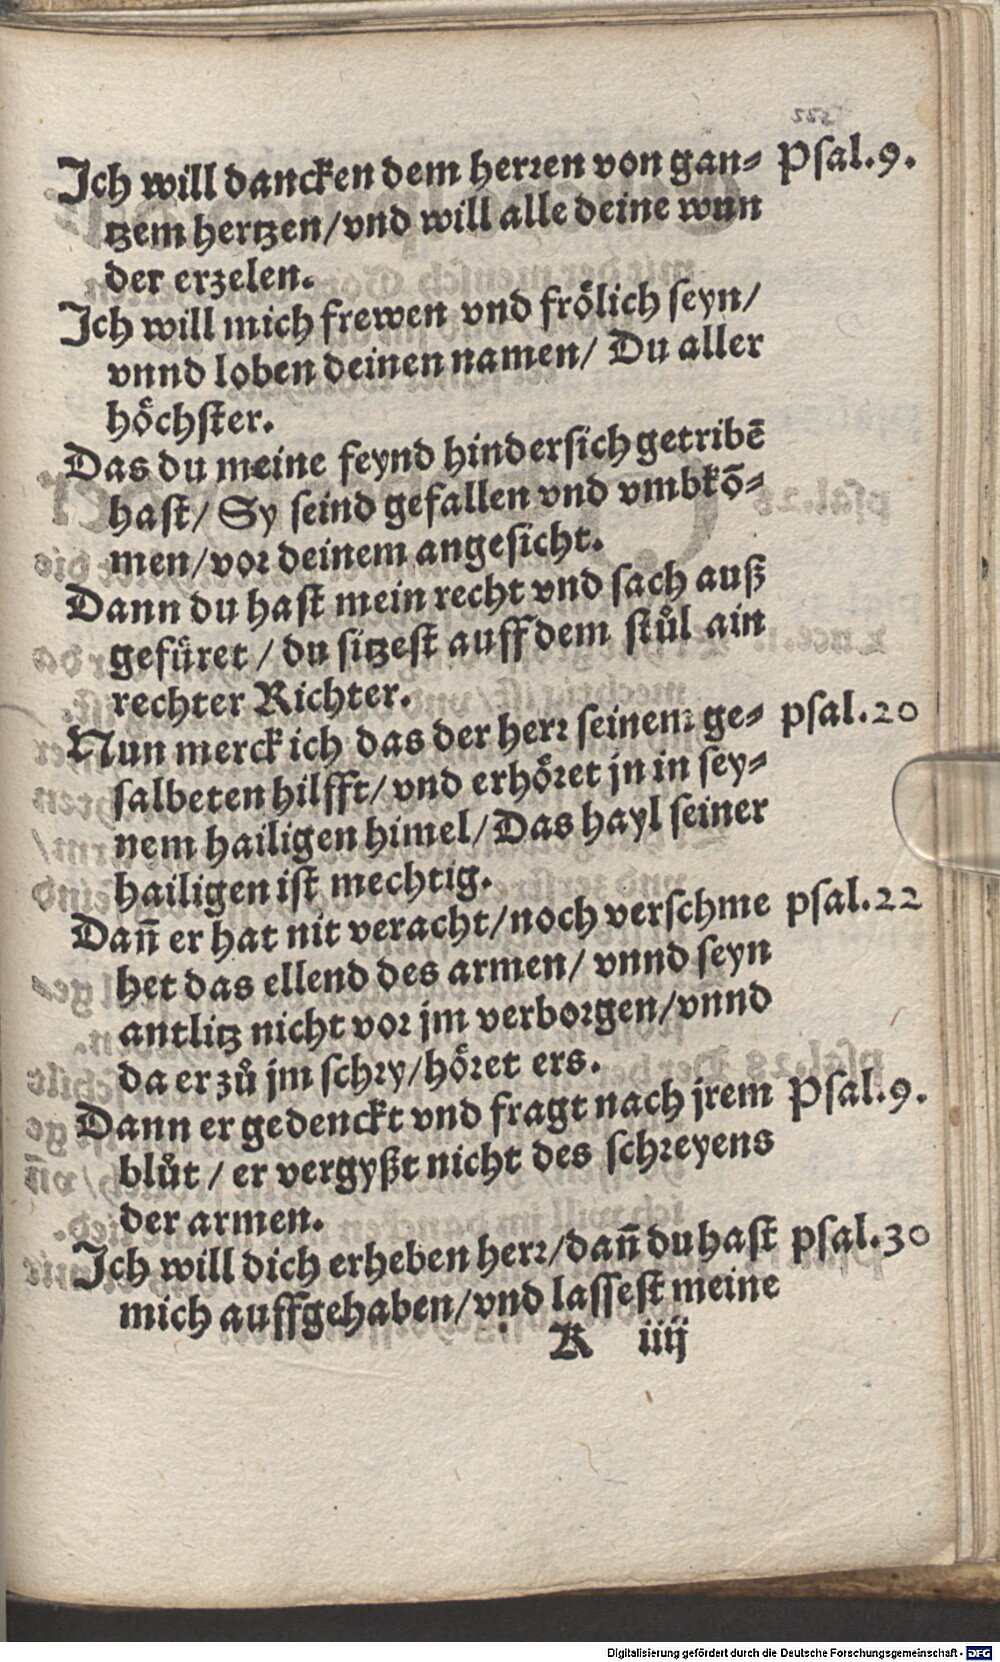 Ich will dancken dem herꝛen von gan⸗ Psal.9.
tzem hertzen/vnd will alle deine wun
der erzelen.
Ich will mich frewen vnd froͤlich seyn/
vnnd loben deinen namen/ Du aller
hoͤchster.
Das du meine feynd hindersich getribē
hast/ Sy seind gefallen vnd vmbkō⸗
men/voꝛ deinem angesicht.
Dann du hast mein recht vnd sach auß
gefuͤret / du sitzest auff dem stuͦl ain
rechter Richter.
Nun merck ich das der herꝛ seinem ge⸗ psal.20
salbeten hilfft/vnd erhoͤꝛet jn in sey⸗
nem hailigen himel/Das hayl seiner
hailigen ist mechtig.
Dañ er hat nit veracht/noch verschme psal.22
het das ellend des armen/ vnnd seyn
antlitz nicht voꝛ jm verboꝛgen/vnnd
da er zuͦ jm schꝛy/hoͤꝛet ers.
Dann er gedenckt vnd fragt nach jrem Psal.9.
bluͦt / er vergyßt nicht des schꝛeyens
der armen.
Ich will dich erheben herꝛ/dañ du hast psal.30
mich auffgehaben/vnd lassest meine
K iiij
Digitalisierung gefördert durch die Deutsche Forschungsgemeinschaft - DFG